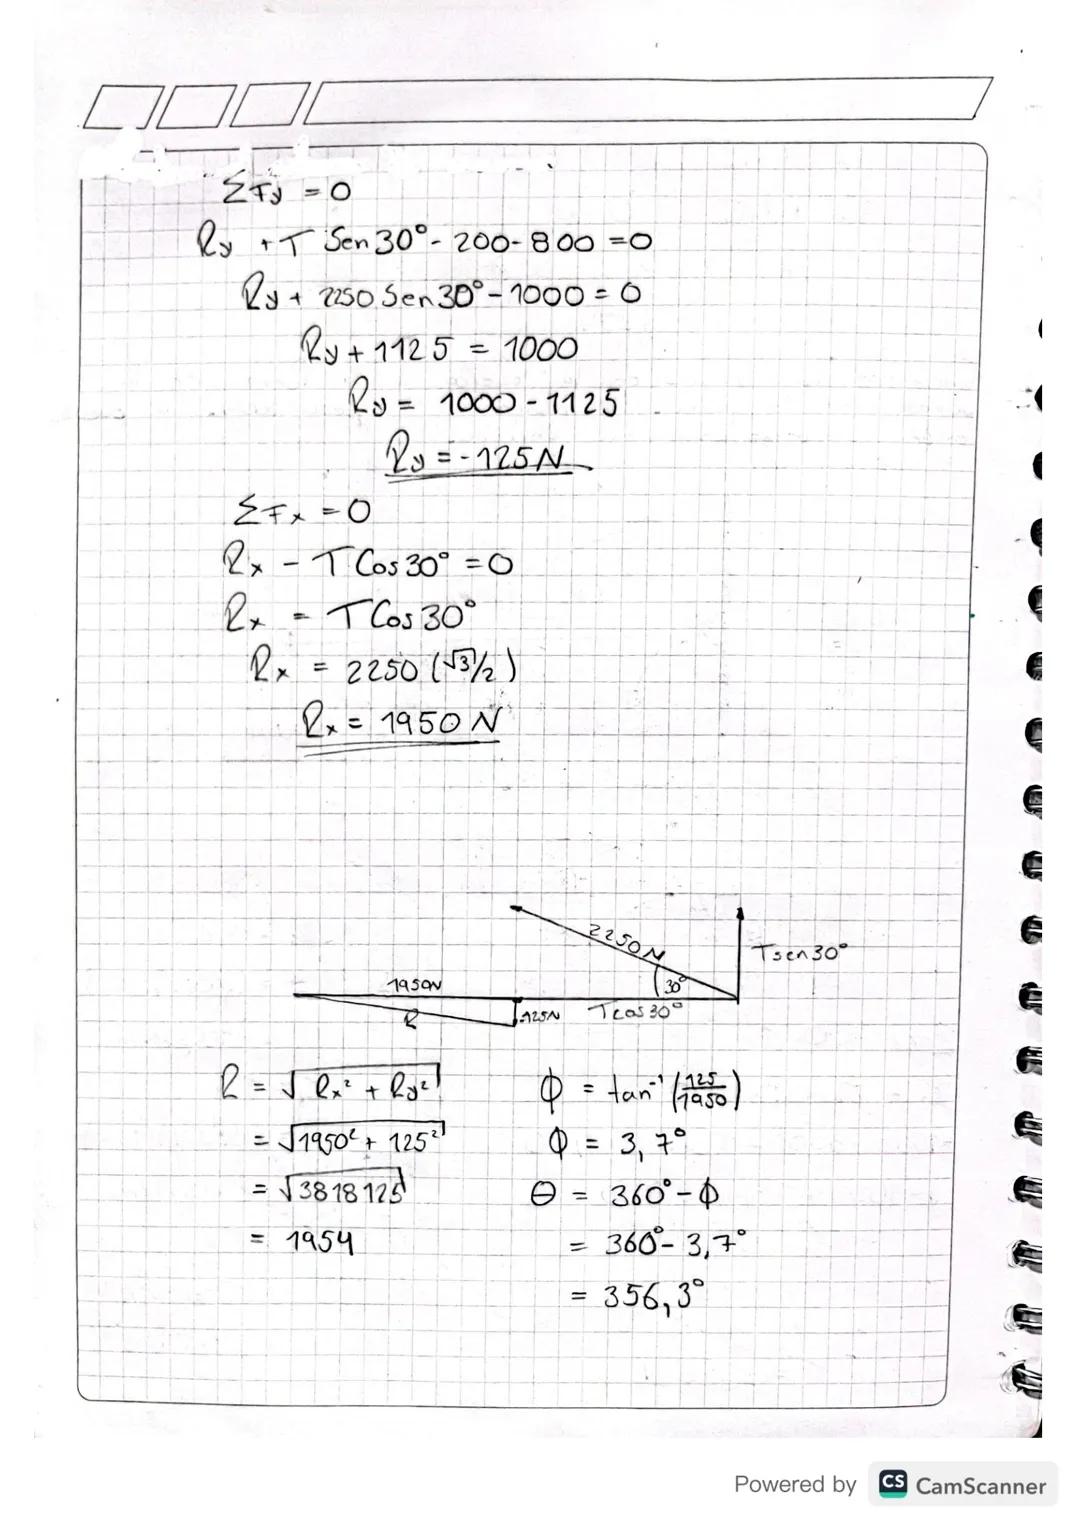 ΣFy = 0
Ry + T Sen 30° - 200 - 800 = 0
Ry + 2250 Sen 30° - 1000 = 0
Ry + 1125 = 1000
Ry = 1000 - 1125
Ry = -125N
ΣFx = 0
Rx - T Cos 30° = 0
Rx = T Cos 30°
Rx = 2250 (√3/2)
Rx = 1950 N
2250 N
Tsen 30°
1950N
30°
R
125N
Tcos 30°
R = √Rx² + Ry²
ϕ = tan⁻¹ (125/1950)
= √1950² + 125²
ϕ = 3,7°
= √3818125
θ = 360° - ϕ
= 1954
= 360° - 3,7°
= 356,3°
Powered by CS CamScanner